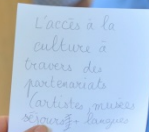 L'accès à la
culture à
travers des
partenariats
(artistes, musées
séjours + langues